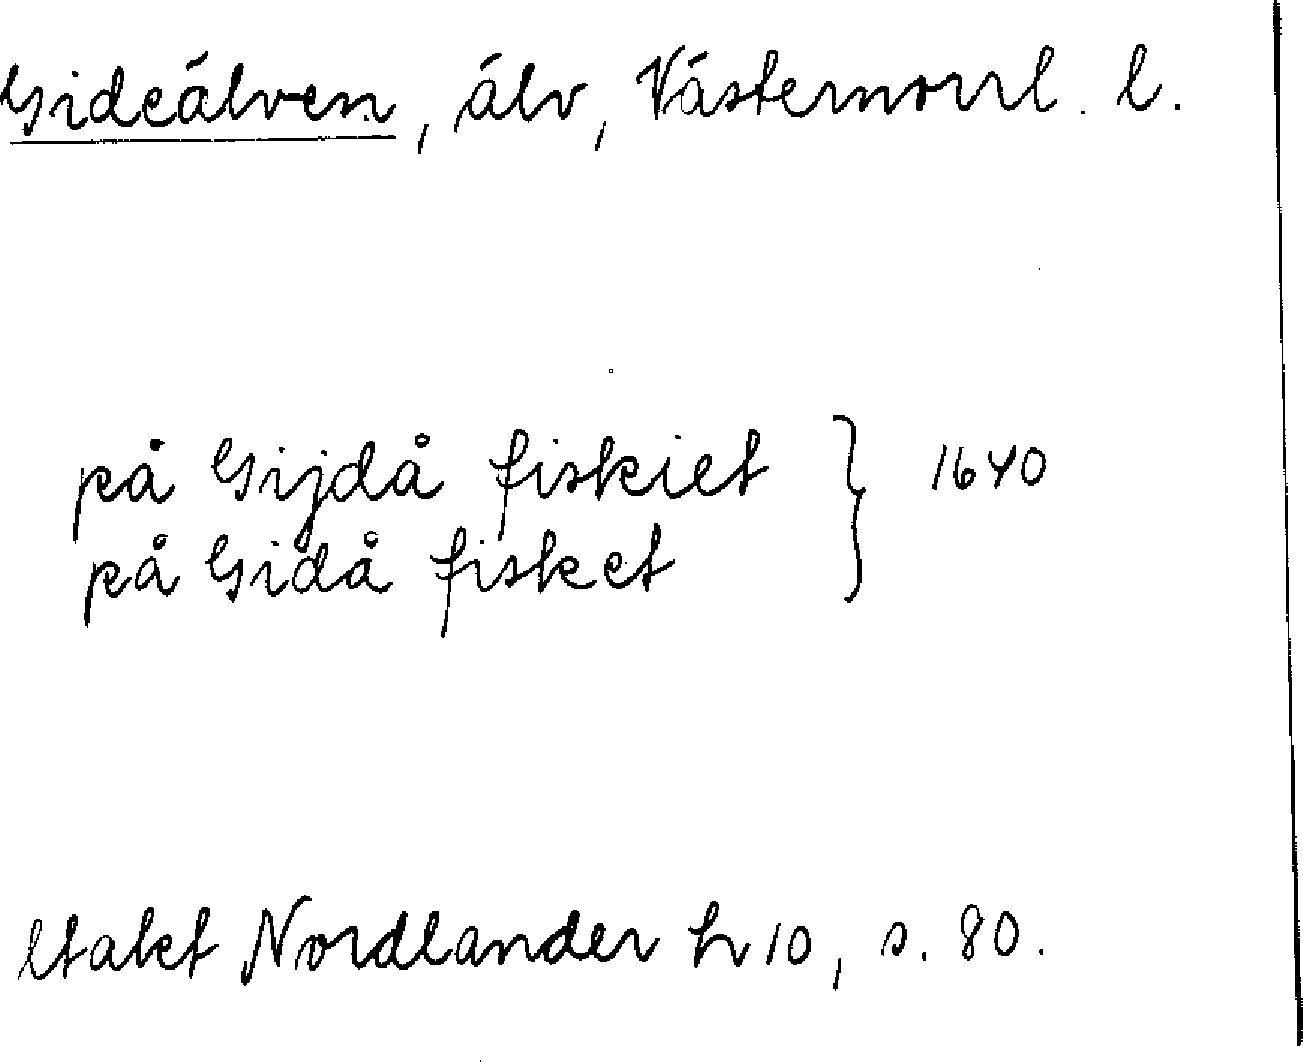 Gideälven, älv, Västernorrl. l.
på Gijdå fiskiet } 1640
på Gidå fisket
Nordlander h 10, s. 80.